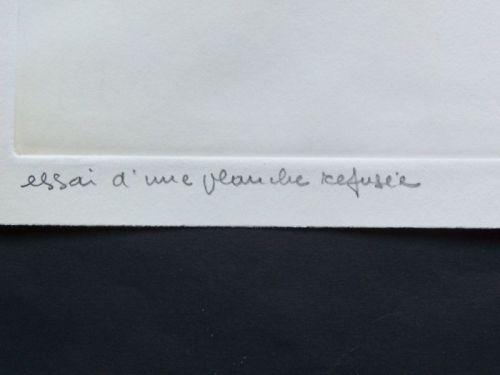 essai d'une planche refusée